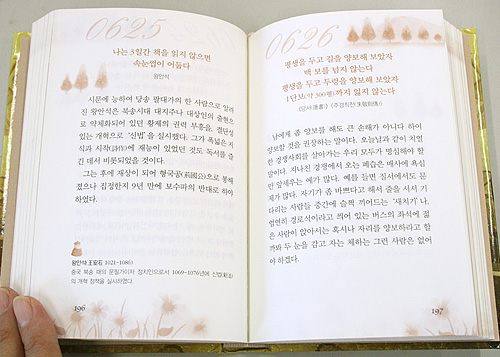 0625
나는 3일간 책을 읽지 않으면
속눈썹이 어둡다
왕안석
시문에 능하여 당송 팔대가의 한 사람으로 알려
진 왕안석은 북송시대 대지주나 대상인의 출현으
로 약체화되어 있던 황제의 권력 부흥을, 결단성
있는 개혁으로 '신법'을 실시했다. 그가 폭넓은 지
식과 시작(詩作)에 재능이 있었던 것도 독서를 즐
긴 데서 비롯되었을 것이다.
그는 후에 재상이 되어 형국공(荊國公)으로 봉해
졌으나 집정한지 9년 만에 보수파의 반대로 하야
하였다.
왕안석(王安石 1021-1086)
중국 북송 때의 문필가이자 정치인으로서 1069~1076년에 신법(新法)
의 개혁 정책을 실시하였다.
196
0626
평생을 두고 길을 양보해 보았자
백 보를 넘지 않는다
평생을 두고 두렁을 양보해 보았자
1단보(약 300평)까지 잃지 않는다
《당서(唐書)》 〈주경칙전(朱敬則傳)〉
남에게 좀 양보를 해도 큰 손해가 아니다 하여
양보할 것을 권장하는 말이다. 오늘날과 같이 치열
한 경쟁사회를 살아가는 우리 모두가 명심해야 할
말이다. 지나친 경쟁에서 오는 폐습은 매사에 욕심
만 앞세우는 예가 많다. 예를 들면 질서에서도 문
제가 많다. 자기가 좀 바쁘다고 해서 줄을 서서 기
다리는 사람들 중간에 슬쩍 끼어드는 '새치기'나,
엄연히 경로석이라고 씌어 있는 버스의 좌석에 젊
은 사람이 앉아서는 혹시나 자리를 양보하라고 할
까봐 두 눈을 감고 자는 체하는 그런 사람은 없어
야 하겠다.
197